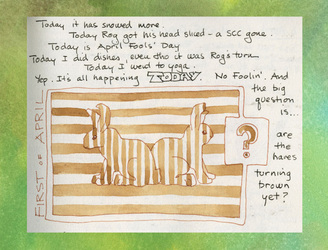 Today it has snowed more.
Today Rog got his head sliced – a SCC gone.
Today is April Fools' Day
Today I did dishes, even tho it was Rog's turn
Today I went to yoga.
Yep. It's all happening TODAY. No Foolin'. And
the big
question
is...
?
are
the hares
turning
brown
yet?
FIRST OF APRIL